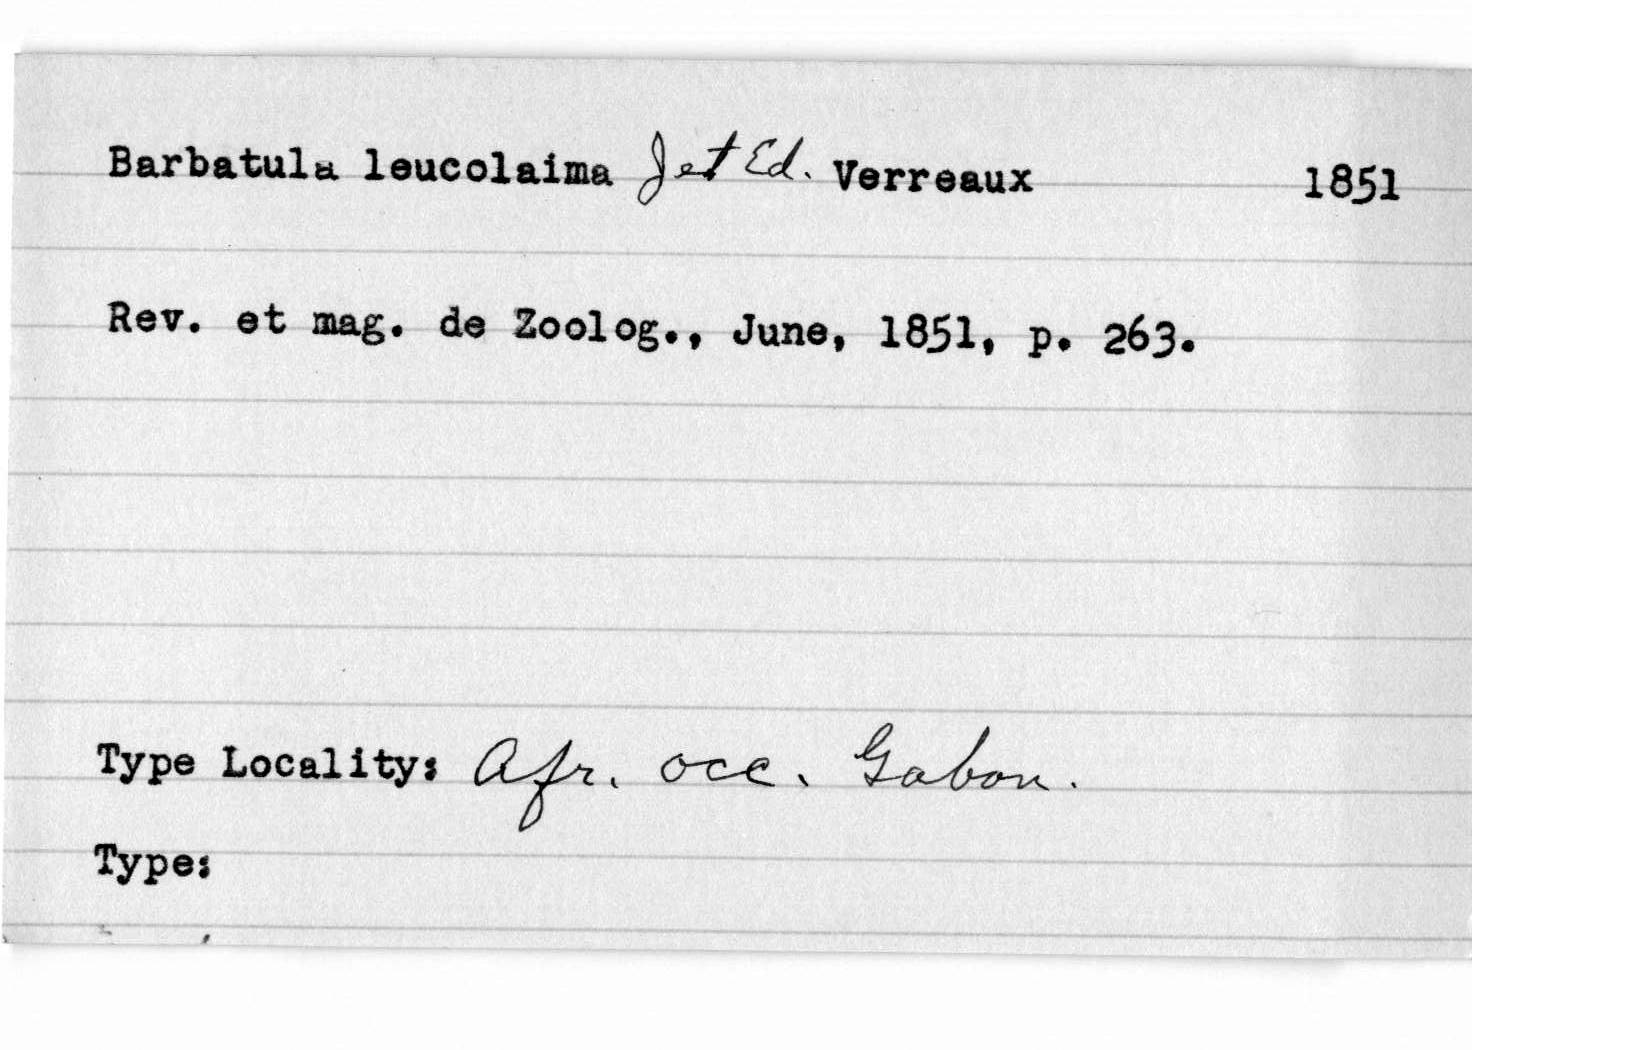 Barbatula leucolaima J et Ed. Verreaux 1851
Rev. et mag. de Zoolog., June, 1851, p. 263.
Type Locality: Afr. occ. Gabon.
Type: